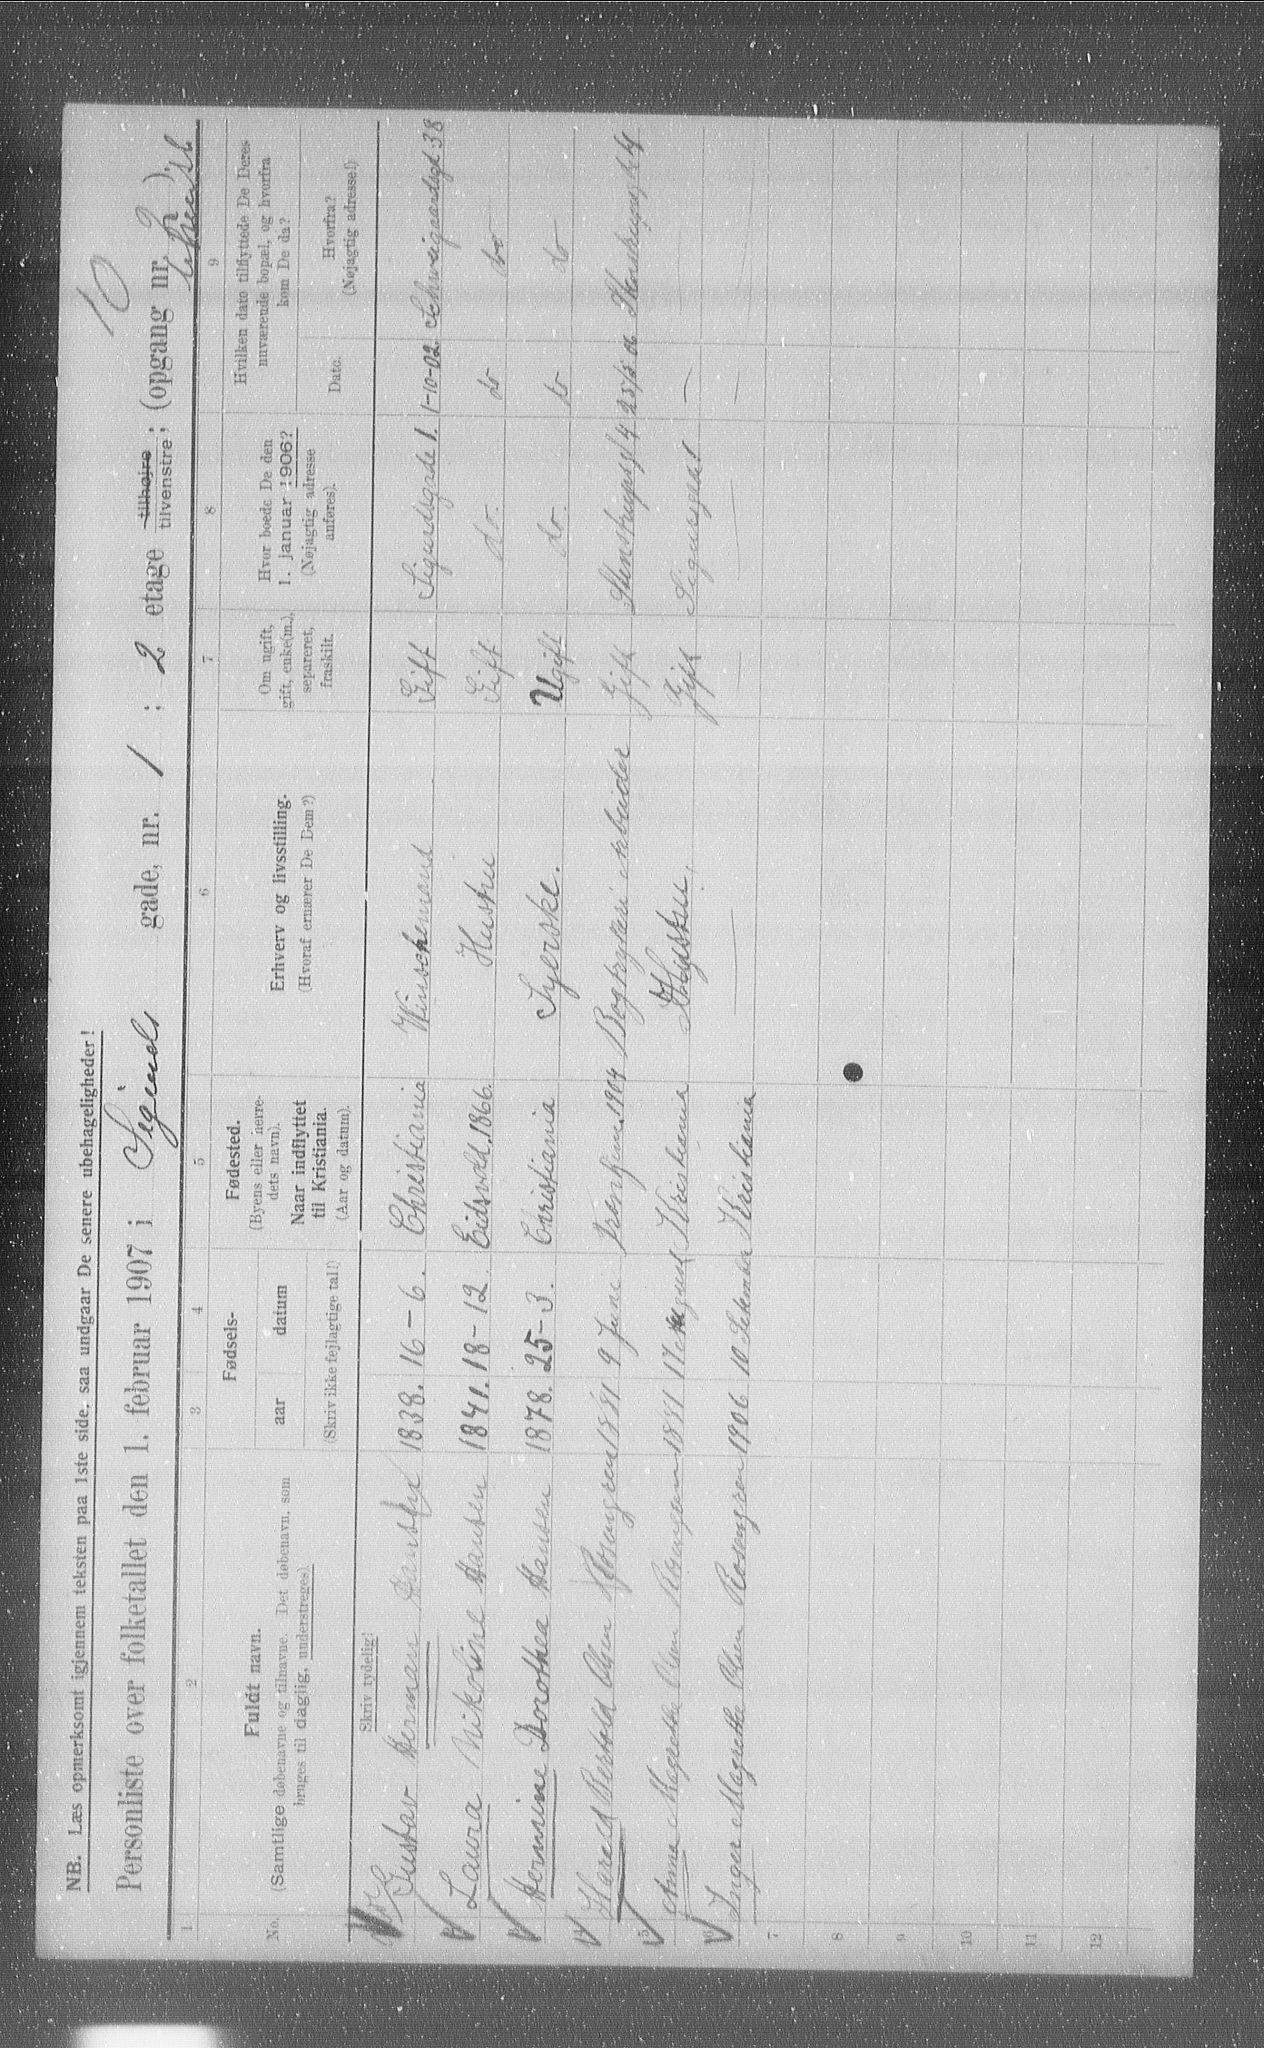 10
NB. Læs opmerksomt igjennem teksten paa 1ste side, saa undgaar De senere ubehageligheder!
Personliste over folketallet den 1. februar 1907 i Sigurds gade, nr. 1 ; 2 etage tilhøjre tilvenstre ; (opgang nr. )
1 2 3 4 5 6 7 8 9
No.
Fuldt navn.
(Samtlige døbenavne og tilnavne. Det døbenavn, som
bruges til daglig, understreges).
Fødsels-
aar datum
(Skriv ikke fejlagtige tal!)
Fødested.
(Byens eller herre-
dets navn).
Naar indflyttet
til Kristiania.
(Aar og datum).
Erhverv og livsstilling.
(Hvoraf ernærer De Dem?)
Om ugift,
gift, enke(m.),
separeret,
fraskilt.
Hvor boede De den
1. januar 1906?
(Nøjagtig adresse
anføres).
Hvilken dato tilflyttede De Deres
nuværende bopæl, og hvorfra
kom De da?
Dato.
Hvorfra?
(Nøjagtig adresse!)
Skriv tydelig!
Gustav Herman Hansen 1838. 16-6. Christiania Gift Sigurdsgade 1. 1-10-02 Schweigaardsgd 38
Laura Nikoline Hansen 1841. 18-12. Eidsvold. 1866. Hustru Gift do. do do
Hermine Dorothea Hansen 1878. 25-3. Christiania Syerske. Ugift do. do do
Harald Bertold Olsen Rosengren 1881 9 June 1904 Bogtrykeri arbeider Gift Stenstrupsgd 4
5 Anna Magrethe Olsen Rosengren 1881 17 August Kristiania Hustru Gift Sigurdsgd 1 —
6 Inger Magrethe Olsen Rosengren 1906 10 September Kristiania — — —
7
8
9
10
11
12